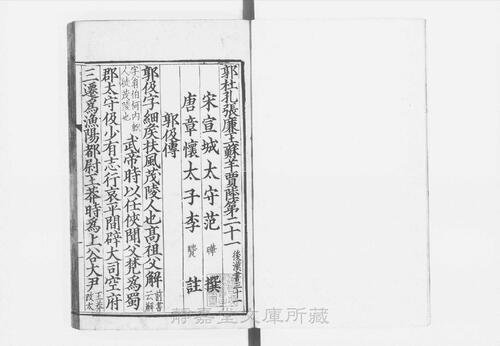 郭杜孔張廉王蘇羊賈陸第二十一 後漢書三十一
宋宣城太守范曄撰
唐章懷太子李賢註
郭伋傳
郭伋字細侯扶風茂陵人也高祖父解 前書云解
字翁伯河內軹人徙茂陵也 武帝時以任俠聞父梵爲蜀
郡太守伋少有志行哀平間辟大司空府
三遷爲漁陽都尉王莽時爲上谷大尹 王莽改太
靜嘉堂文庫所藏